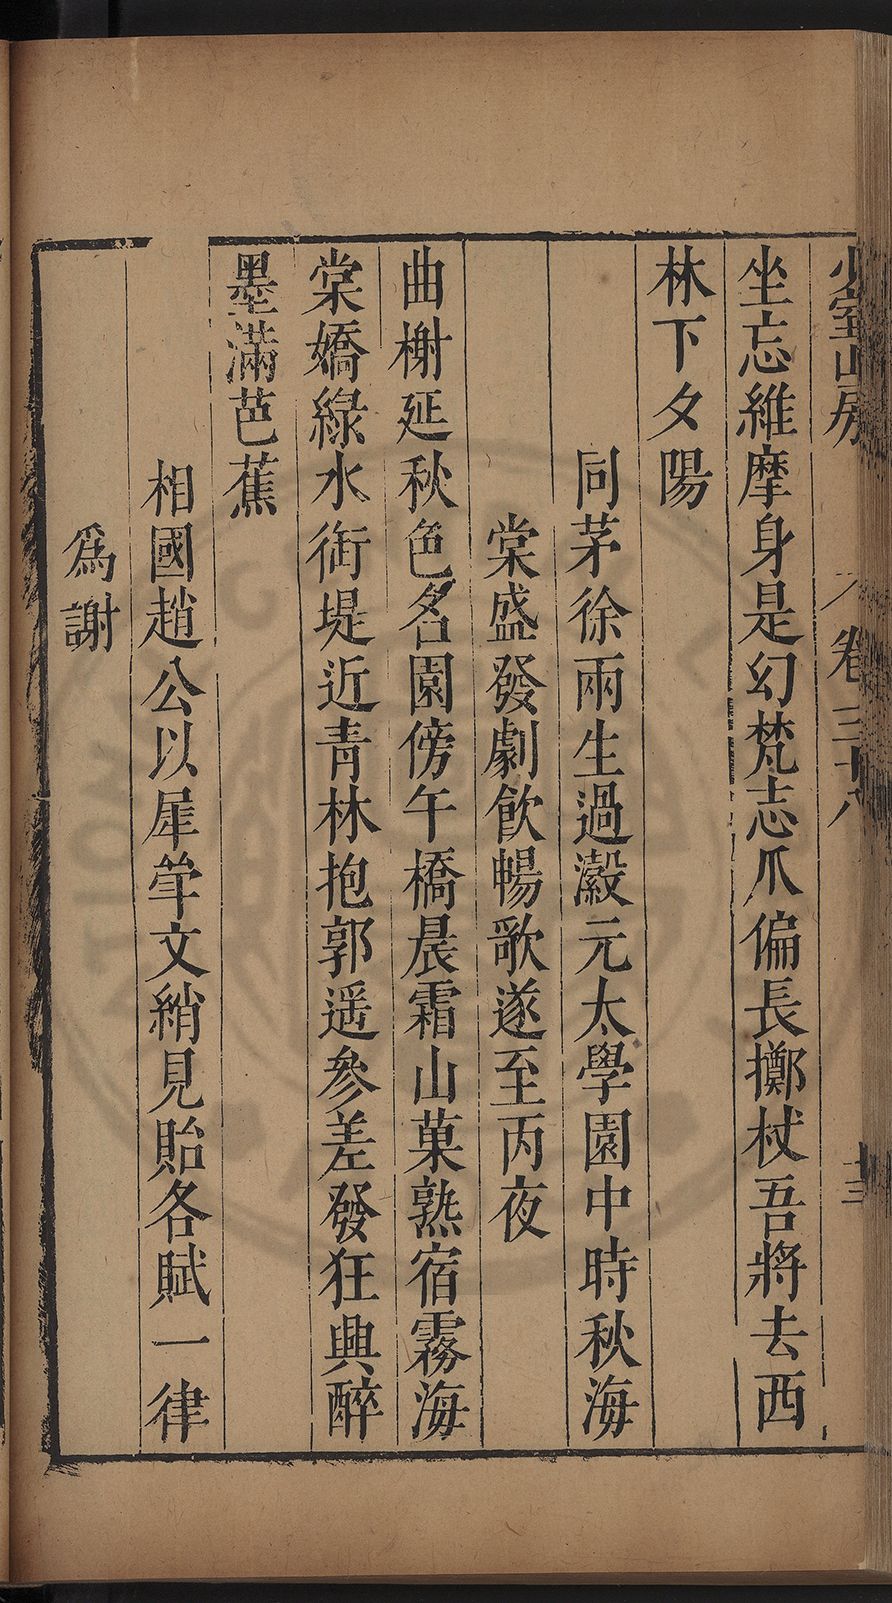 少室山房 卷三十八 十三
坐忘維摩身是幻梵志爪偏長擲杖吾將去西
林下夕陽
同茅徐兩生過瀫元太學園中時秋海
棠盛發劇飲暢歌遂至丙夜
曲榭延秋色名園傍午橋晨霜山菓熟宿霧海
棠嬌綠水銜堤近青林抱郭遥參差發狂興醉
墨滿芭蕉
相國趙公以犀箄文綃見貽各賦一律
爲謝